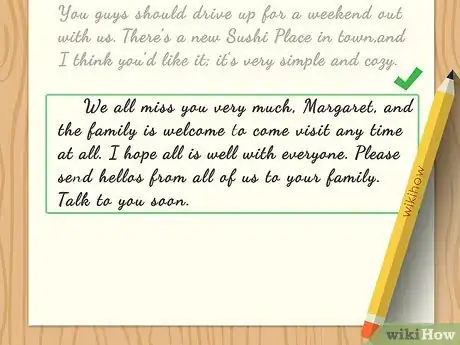 You guys should drive up for a weekend out
with us. There's a new Sushi Place in town,and
I think you'd like it; it's very simple and cozy.
We all miss you very much, Margaret, and
the family is welcome to come visit any time
at all. I hope all is well with everyone. Please
send hellos from all of us to your family.
Talk to you soon.
wikihow
wikiHow